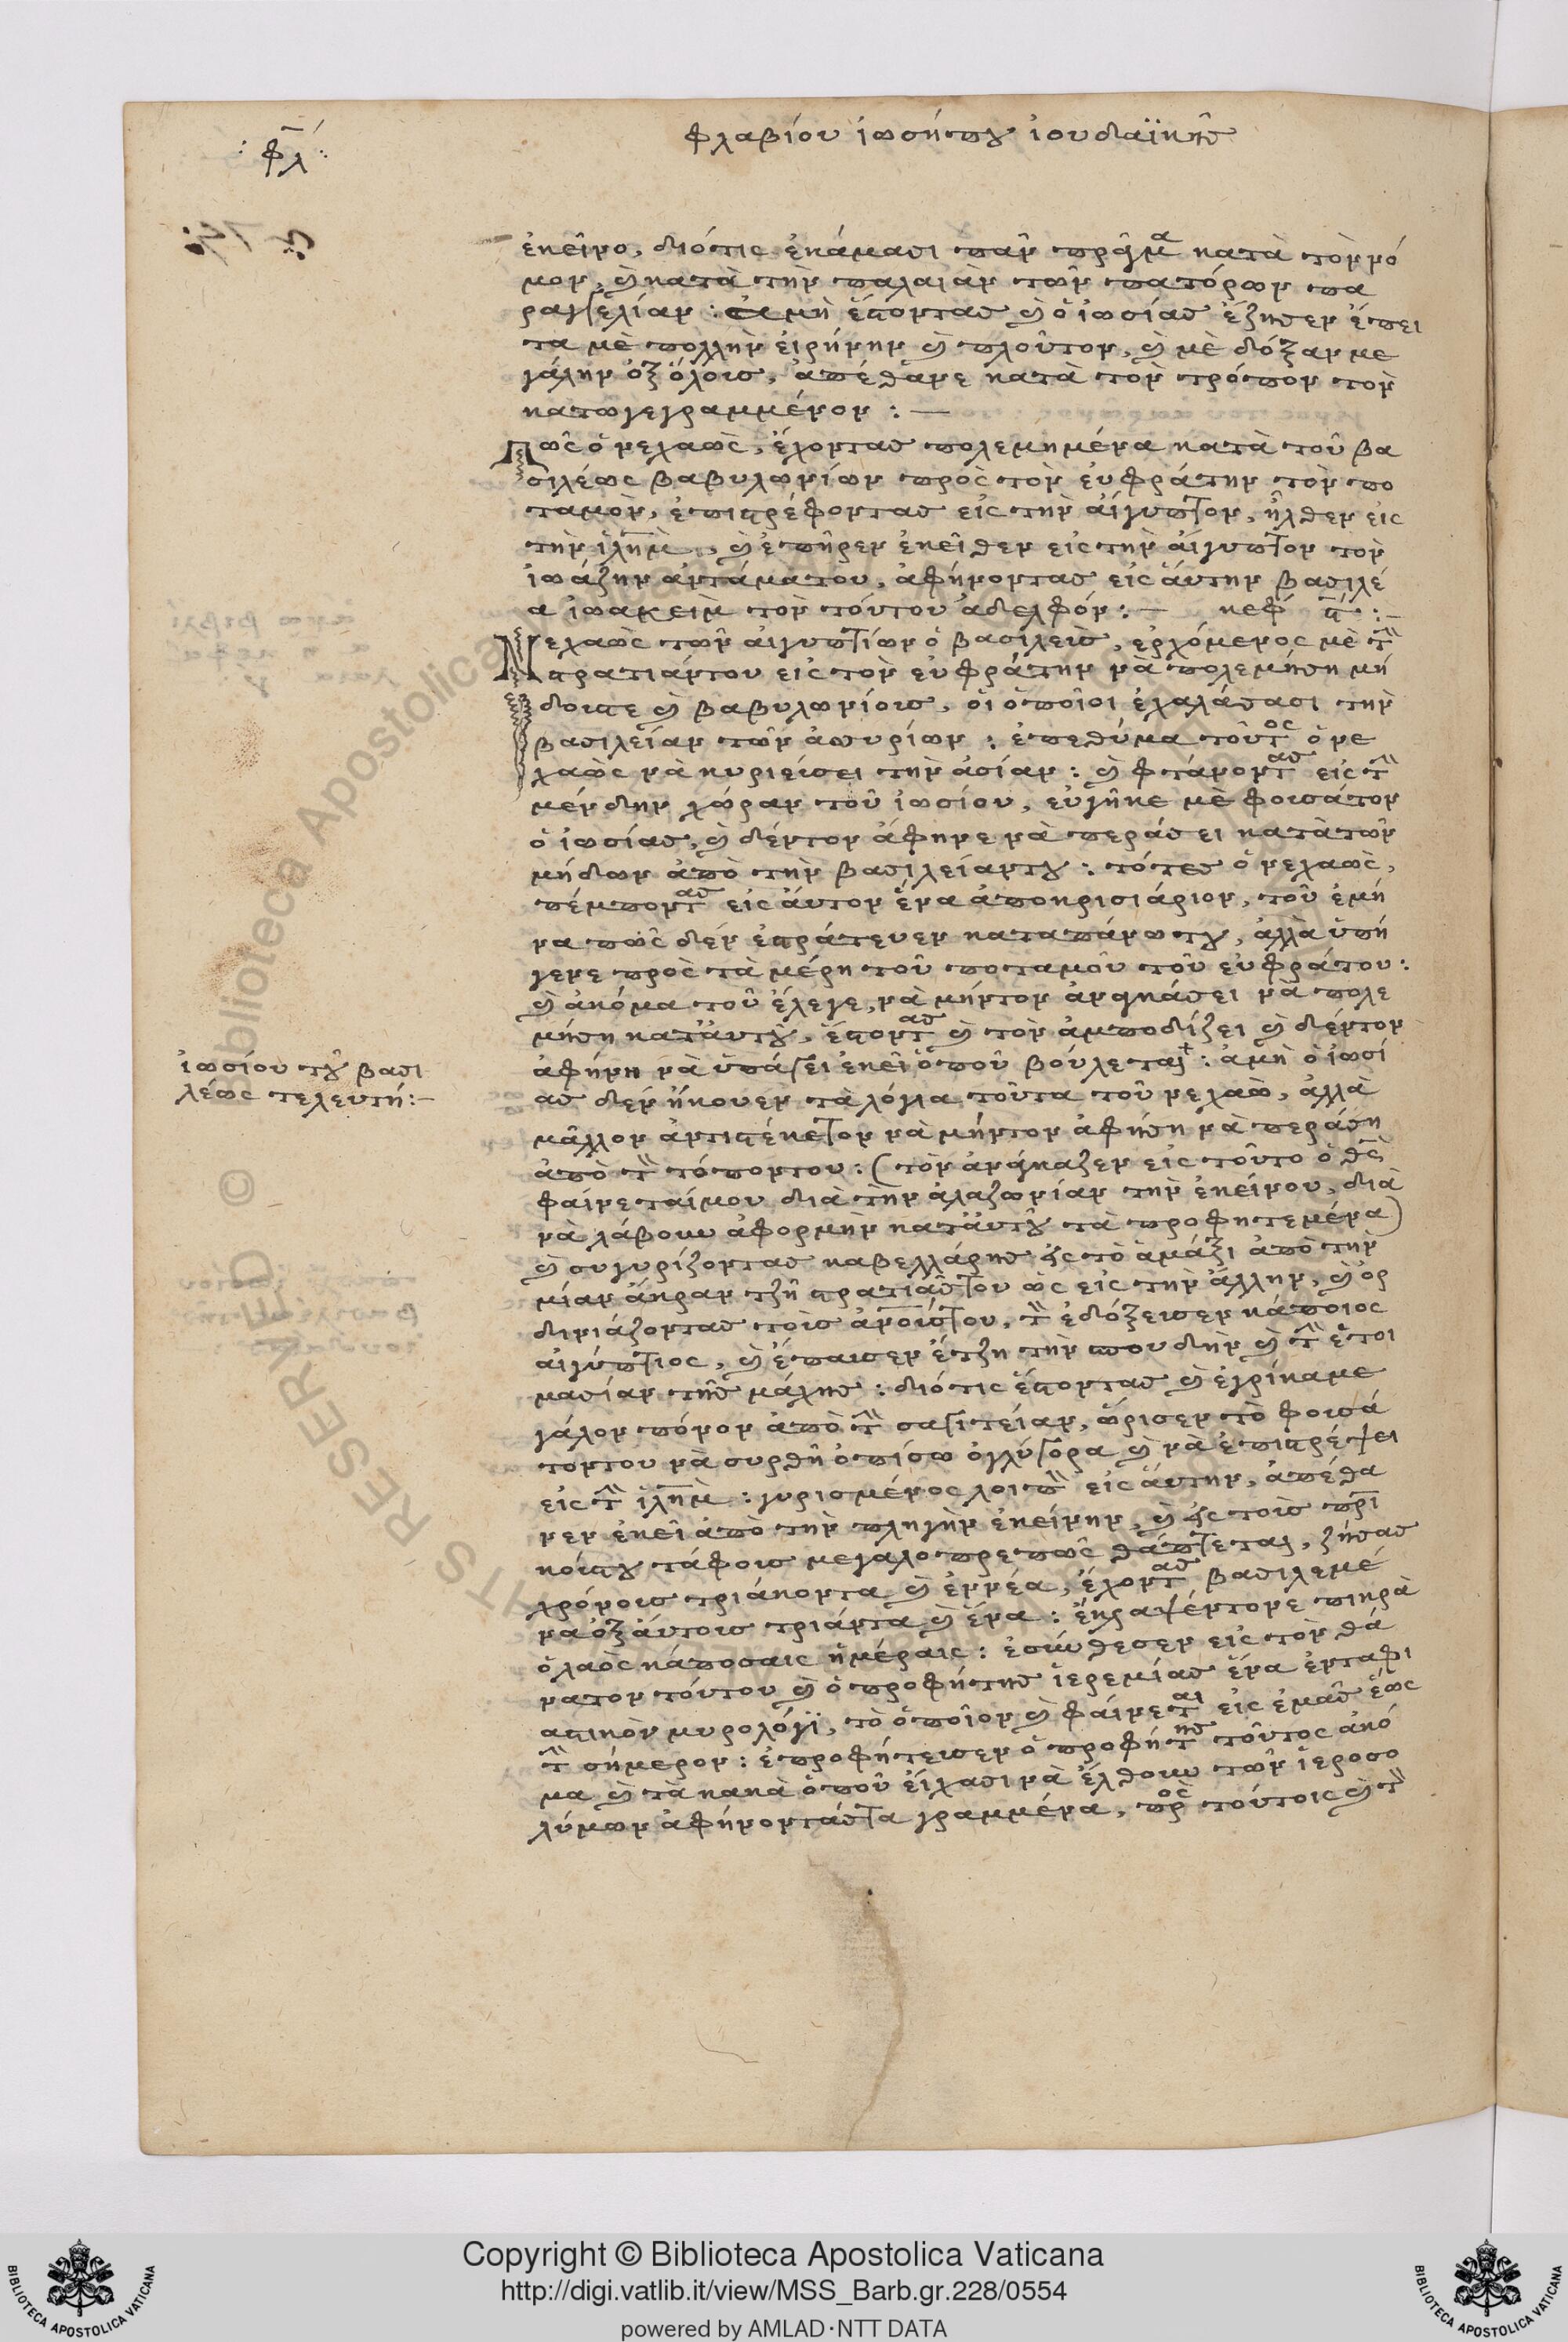 φλαβίου ἰωσήπου ἰουδαϊκῆς
: φλ̅ :
ἐκεῖνο, διότις ἐκάμασι πᾶν πρᾶγμα κατὰ τὸν νό
μον, καὶ κατὰ τὴν παλαιὰν τῶν πατέρων πα
ραγγελίαν : ἀμὴ ἔστοντας καὶ ὁ ἰωσίας ἔζησεν ἔπει
τα μὲ πολλὴν εἰρήνην καὶ πλοῦτον, καὶ μὲ δόξαν με
γάλην ὀξ ὅλους, ἀπέθανε κατὰ τὸν τρόπον τὸν
κατωγεγραμμένον : —
Πῶς ὁ νεχαὼς, ἔχοντας πολεμημένα κατὰ τοῦ βα
σιλέως βαβυλωνίων πρὸς τὸν εὐφράτην τὸν πο
ταμὸν, ἐπιστρέφοντας εἰς τὴν αἴγυπτον, ἦλθεν εἰς
τὴν ἱλημ̅, καὶ ἐπῆρεν ἐκεῖθεν εἰς τὴν αἴγυπτον τὸν
ἰωάζην ἀντάματου, ἀφήνοντας εἰς αὔτην βασιλέ
α ἰωακεὶμ τὸν τούτου ἀδελφόν : — κεφ ϛ̅ : —
Νεχαὼς τῶν αἰγυπτίων ὁ βασιλεὺς, ἐρχόμενος μὲ τὴν
στρατιάντου εἰς τὸν εὐφράτην νὰ πολεμήση μή
δους τε καὶ βαβυλωνίους, οἱ ὁποῖοι ἐχαλάσασι τὴν
βασιλείαν τῶν ἀσσυρίων : ἐπεθύμα τοῦτος ὁ νε
χαὼς νὰ κυριεύσει τὴν ἀσίαν : καὶ φτάνοντας εἰς τὴν
μένδην χώραν τοῦ ἰωσίου, εὐγῆκε μὲ φουσάτον
ὁ ἰωσίας, καὶ δέντον ἄφηνε νὰ περάσει κατὰ τῶν
μήδων ἀπὸ τὴν βασιλείαντου : τότες ὁ νεχαὼς,
πέμποντας εἰς αὔτον ἕνα ἀποκρισιάριον, τοῦ ἐμή
να πῶς δὲν ἐστράτευεν καταπάνωτου, ἀλλὰ ὑπή
γενε πρὸς τὰ μέρη τοῦ ποταμοῦ τοῦ εὐφράτου :
καὶ ἀκόμα τοῦ ἔλεγε, νὰ μήντον ἀναγκάσει νὰ πολε
μήση κατ' αὐτοῦ, ἔστοντας καὶ τὸν ἀμποδίζει καὶ δέντον
ἀφήνη νὰ ὑπάγει ἐκεῖ ὁποῦ βούλεται : ἀμὴ ὁ ἰωσί
ας δὲν ἤκουεν τὰ λόγια τοῦτα τοῦ νεχαὼ, ἀλλὰ
μᾶλλον ἀντιστέκετον νὰ μήντον ἀφήση νὰ περάση
ἀπὸ τὸν τόποντου : (τὸν ἀνάγκαζεν εἰς τοῦτο ὁ θς̅
φαίνεταίμου διὰ τὴν ἀλαζωνίαν τὴν ἐκείνου, διὰ
νὰ λάβουν ἀφορμὴν κατ' αὐτοῦ τὰ προφητεμένα)
καὶ συγυρίζοντας καβελλάρης εἰς τὸ ἁμάξι ἀπὸ τὴν
μίαν ἄκραν τζῆ στρατιᾶς του ὡς εἰς τὴν ἄλλην, καὶ ὀρ
δινιάζοντας τοὺς ἀν̅ους του, τὸν ἐδόξευσεν κάποιος
αἰγύπτιος, καὶ ἔπαυσεν ἔτζη τὴν σπουδὴν καὶ τὴν ἑτοι
μασίαν τῆς μάχης : διότις ἔστοντας καὶ ἐγρίκα με
γάλον πόνον ἀπὸ τὴν σαγιτείαν, ὥρισεν τὸ φουσά
τοντου νὰ συρθῆ ὀπίσω ὀγλύγορα καὶ νὰ ἐπιστρέψει
εἰς τὴν ἱλημ̅ : γυρισμένος λοιπὸν εἰς αὔτην, ἀπέθα
νεν ἐκεῖ ἀπὸ τὴν πληγὴν ἐκείνην, καὶ εἰς τοὺς πρι̅
κούςτου τάφους μεγαλοπρεπῶς θάπτεται, ζήσας
χρόνους τριάκοντα καὶ ἐννέα, ἔχοντας βασιλεμέ
να ὀξ αὔτους τριάντα καὶ ἕνα : ἔκραψέντονε πικρὰ
ὁ λαὸς κάποσαις ἡμέραις : ἐσύνθεσεν εἰς τὸν θά
νατον τούτου καὶ ὁ προφήτης ἱερεμίας ἕνα ἐνταφι
αστικὸν μυρολόγϊ, τὸ ὁποῖον καὶ φαίνεται εἰς ἐμᾶς ἕως
τὴν σήμερον : ἐπροφήτευσεν ὁ προφήτης τοῦτος ἀκό
μα καὶ τὰ κακὰ ὁποῦ εἴχασι νὰ ἔλθουν τῶν ἱεροσο
λύμων ἀφήνοντάς τα γραμμένα, πρὸς τούτοις καὶ τὴν
ἰωσίου τοῦ βασι
λέως τελευτή : —
Copyright © Biblioteca Apostolica Vaticana
http://digi.vatlib.it/view/MSS_Barb.gr.228/0554
powered by AMLAD·NTT DATA
BIBLIOTECA APOSTOLICA VATICANA
BIBLIOTECA APOSTOLICA VATICANA